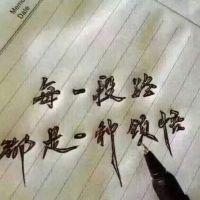 Memo
Date
每一段路
都是一种领悟